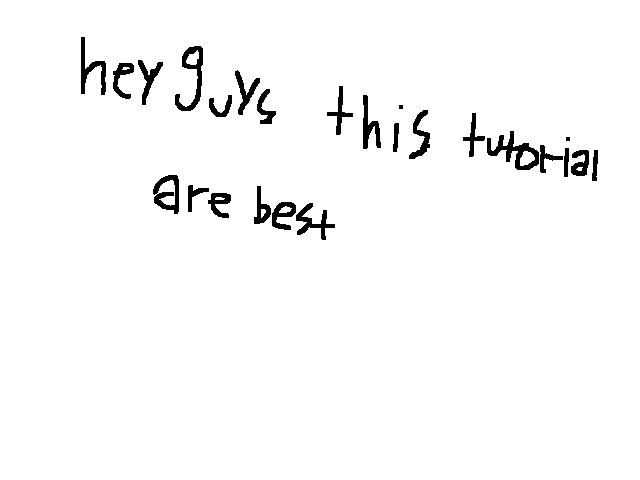 hey guys this tutorial
are best